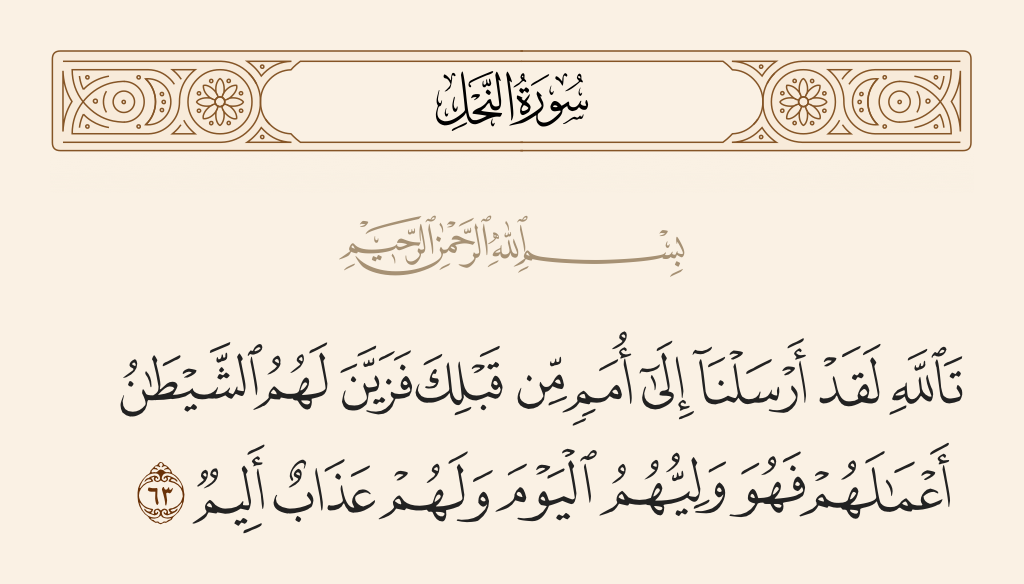 سُورَةُ النَّحْلِ
بِسْمِ ٱللَّهِ ٱلرَّحْمَٰنِ ٱلرَّحِيمِ
تَٱللَّهِ لَقَدْ أَرْسَلْنَآ إِلَىٰٓ أُمَمٍ مِّن قَبْلِكَ فَزَيَّنَ لَهُمُ ٱلشَّيْطَٰنُ
أَعْمَٰلَهُمْ فَهُوَ وَلِيُّهُمُ ٱلْيَوْمَ وَلَهُمْ عَذَابٌ أَلِيمٌ ٦٣